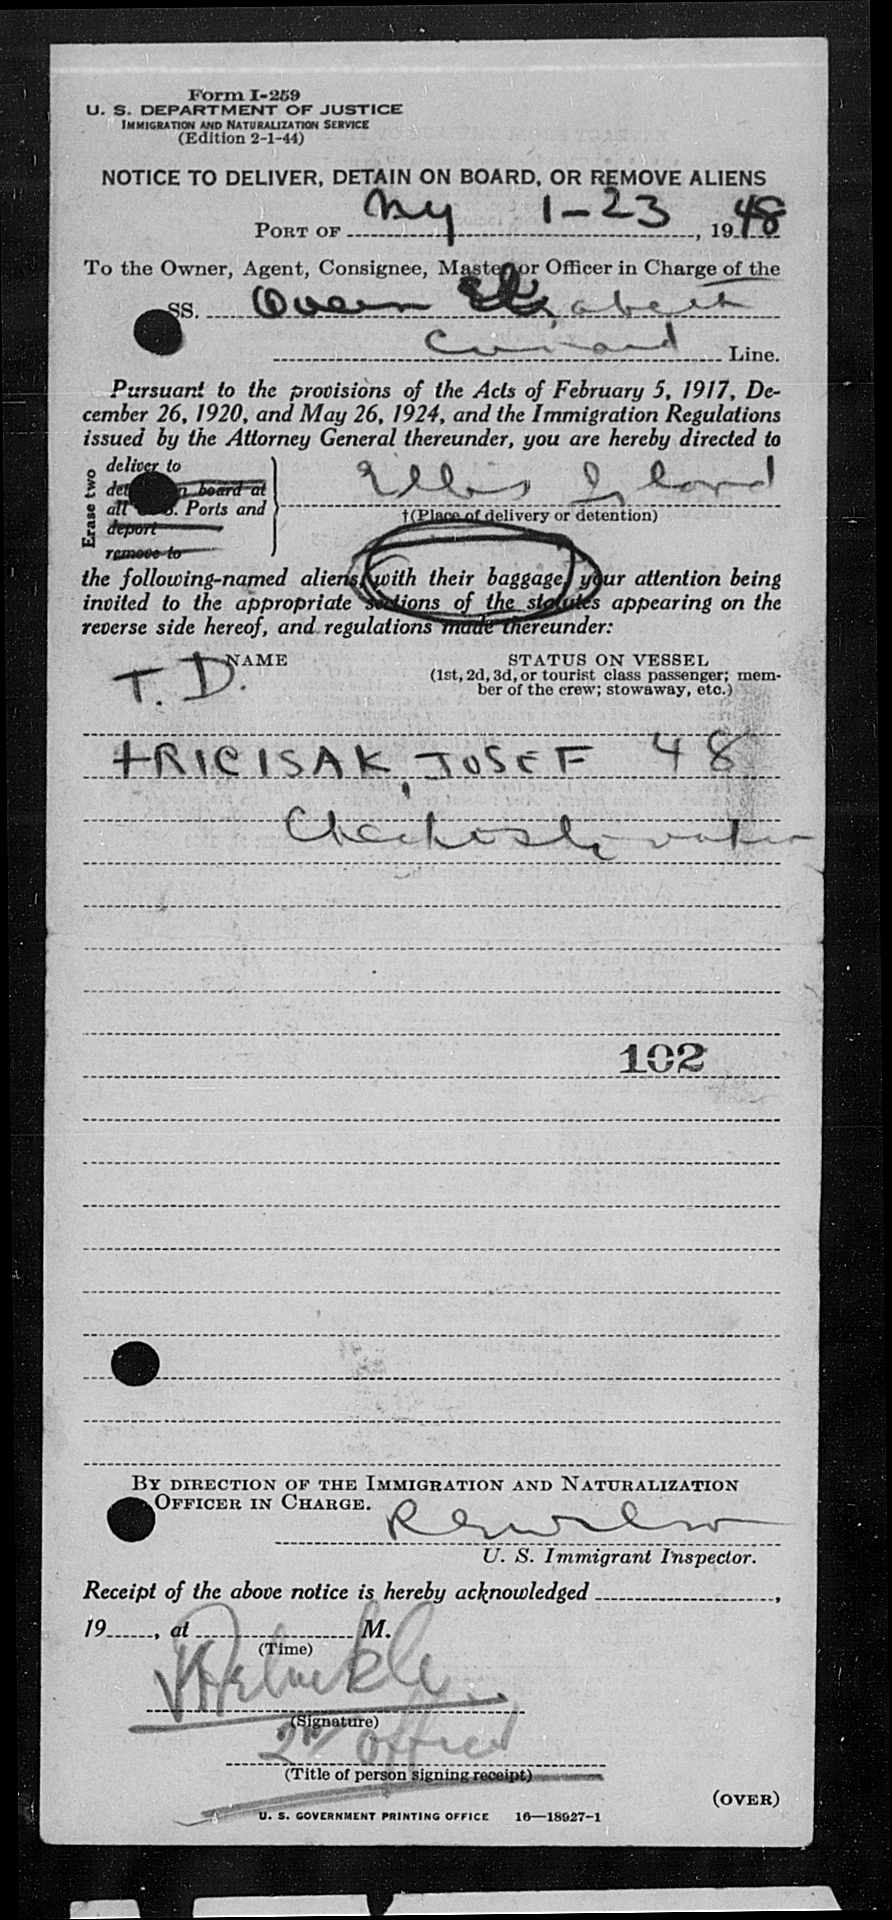 Form I-259
U. S. DEPARTMENT OF JUSTICE
IMMIGRATION AND NATURALIZATION SERVICE
(Edition 2-1-44)
NOTICE TO DELIVER, DETAIN ON BOARD, OR REMOVE ALIENS
PORT OF NY 1-23, 1948
To the Owner, Agent, Consignee, Master, or Officer in Charge of the
SS. Queen Elizabeth
Cunard Line.
Pursuant to the provisions of the Acts of February 5, 1917, De-
cember 26, 1920, and May 26, 1924, and the Immigration Regulations
issued by the Attorney General thereunder, you are hereby directed to
Erase two
deliver to
board at
all Ports and
deport
remove to
Ellis Island
†(Place of delivery or detention)
the following-named aliens, with their baggage, your attention being
invited to the appropriate sections of the statutes appearing on the
reverse side hereof, and regulations made thereunder:
NAME
STATUS ON VESSEL
(1st, 2d, 3d, or tourist class passenger; mem-
ber of the crew; stowaway, etc.)
T. D.
+RICISAK, JOSEF 48
102
BY DIRECTION OF THE IMMIGRATION AND NATURALIZATION
OFFICER IN CHARGE.
U. S. Immigrant Inspector.
Receipt of the above notice is hereby acknowledged ,
19 , at M.
(Time)
(Signature)
2nd officer
(Title of person signing receipt)
(OVER)
U. S. GOVERNMENT PRINTING OFFICE 16—18927-1